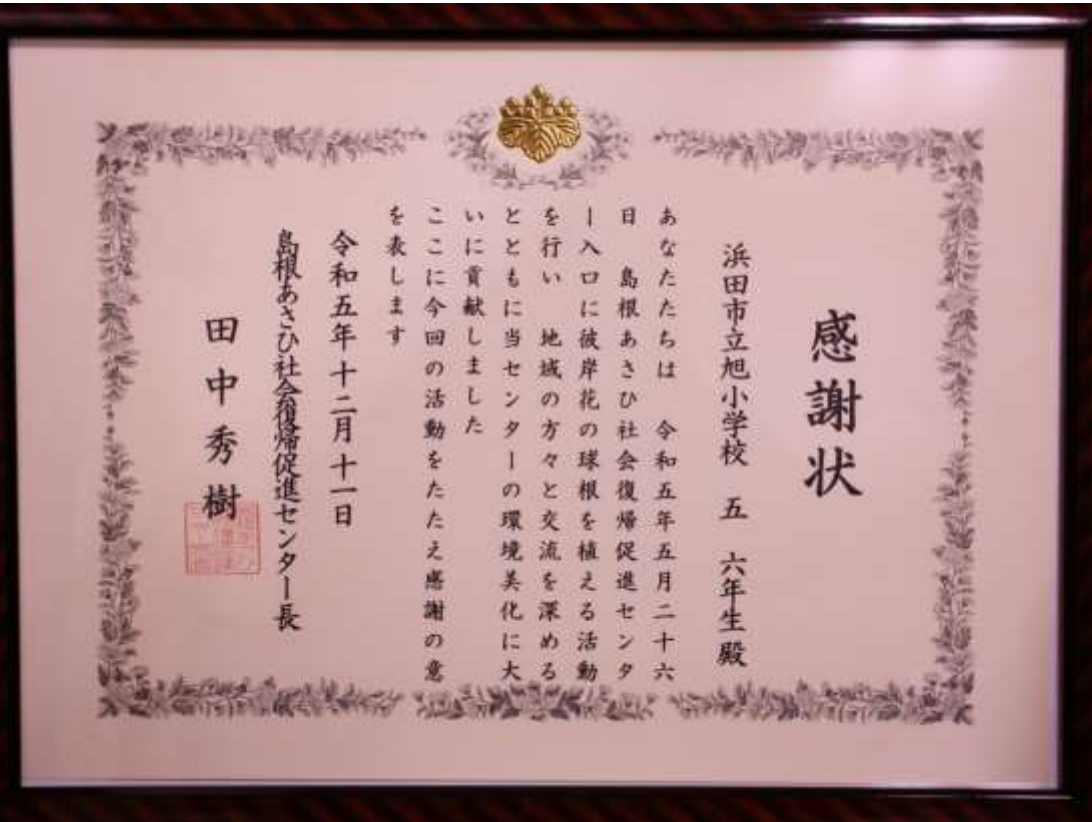 感謝状
浜田市立旭小学校 五 六年生殿
あなたたちは 令和五年五月二十六
日 島根あさひ社会復帰促進センタ
ー入口に彼岸花の球根を植える活動
を行い 地域の方々と交流を深める
とともに当センターの環境美化に大
いに貢献しました
ここに今回の活動をたたえ感謝の意
を表します
令和五年十二月十一日
島根あさひ社会復帰促進センター長
田中秀樹